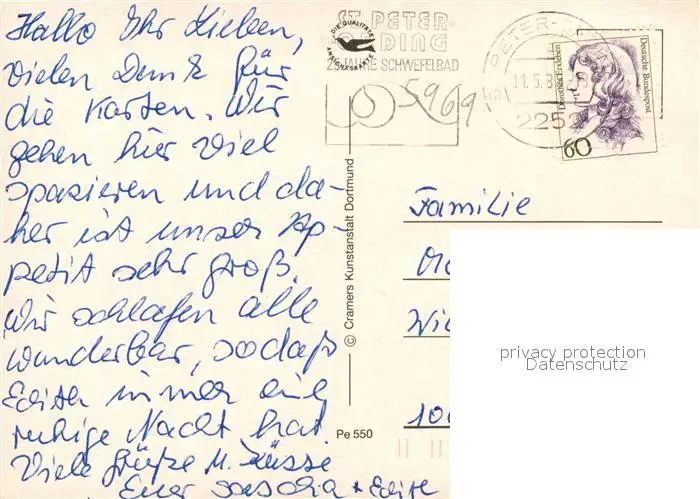 Hallo Ihr Lieben,
vielen Dank für
die Karten. Wir
gehen hier viel
spazieren und da-
her ist unser Ap-
petit sehr groß.
Wir schlafen alle
wunderbar, sodaß
Edith immer eine
ruhige Nacht hat.
Viele Grüße u. Küsse
Euer Sascha + Edith
ST. PETER-
ORDING
JAHRE SCHWEFELBAD
DIE QUALITÄTS
ANSICHTSKARTE
PETER-
11.5.8
2252
Dorothea Erxleben
Deutsche Bundespost
60
© Cramers Kunstanstalt Dortmund
Pe 550
Familie
Wil
10
privacy protection
Datenschutz